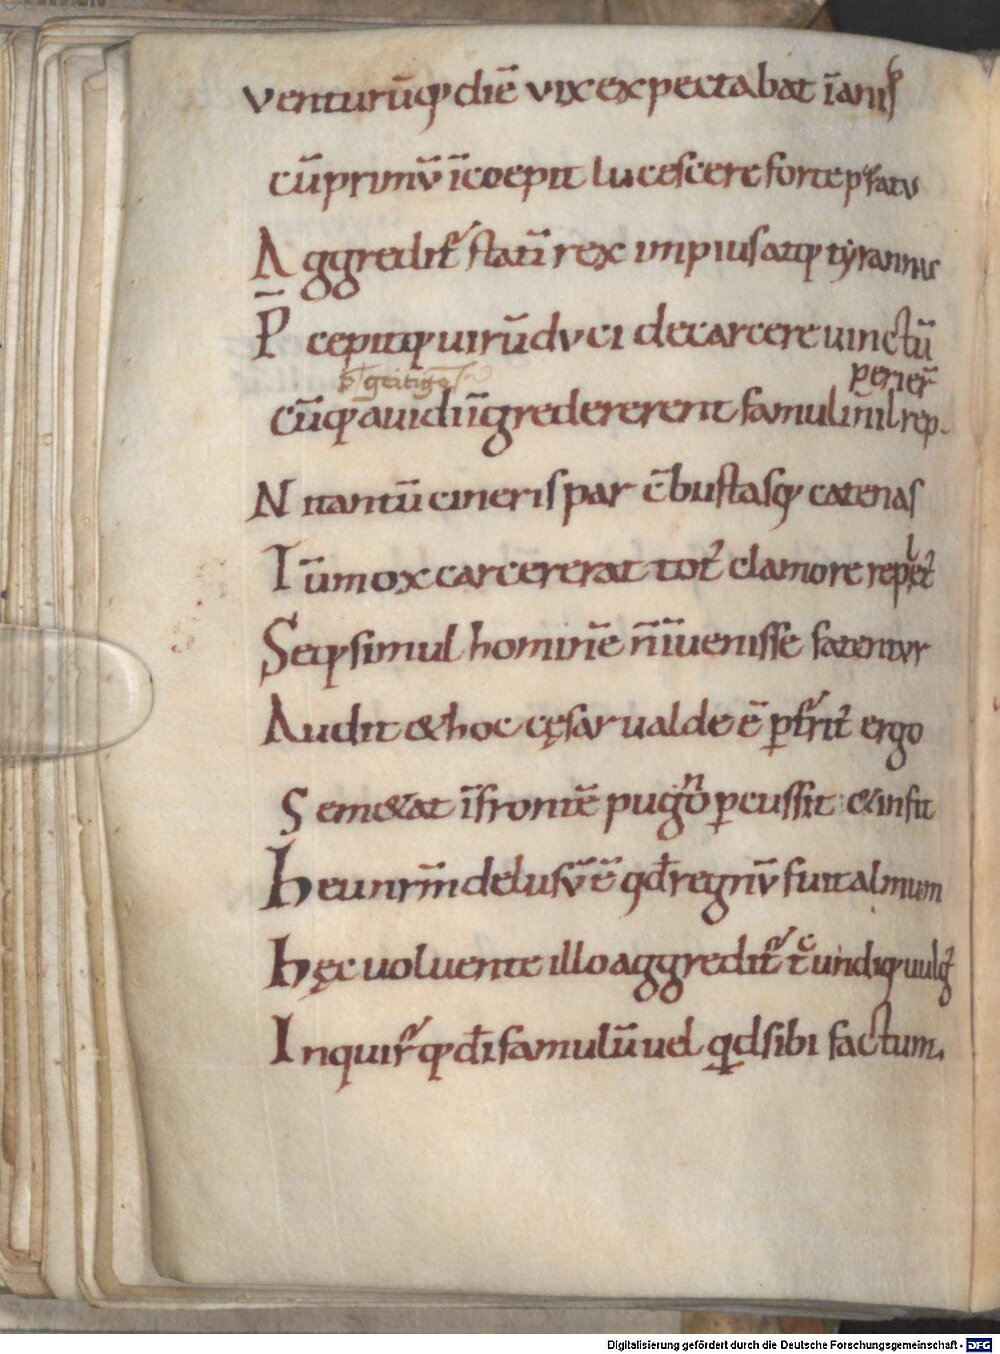 venturūꝙ diē vix expectabat īanis
cū primū īcoepit lucescere forte
Aggredit᷑ statī rex impius atq; tyrannus
P̄cepitq; uirū dvci de carcere uinctū
perier̄
Cūꝙ auidi īgrederentur famuli nil rep.
N itantū cineris par c̄bustasq; catenas
Tū mox carcer erat tot᷑ clamore replet᷑
Seq; simul hominē n̄ īuenisse fatentvr
Audit & hoc cęsar ualde ē ꝑt᷑rit᷑ ergo
Semet at ī frontē pugno ꝑcussit & infit
Heu nr̄m delusv̄ ē qd̄ regnv̄ fuit almum
Hęc uoluente illo aggredit᷑ t̄c undiq; uulg᷑
Inquir᷑ q; dī famulū uel qd sibi factum.